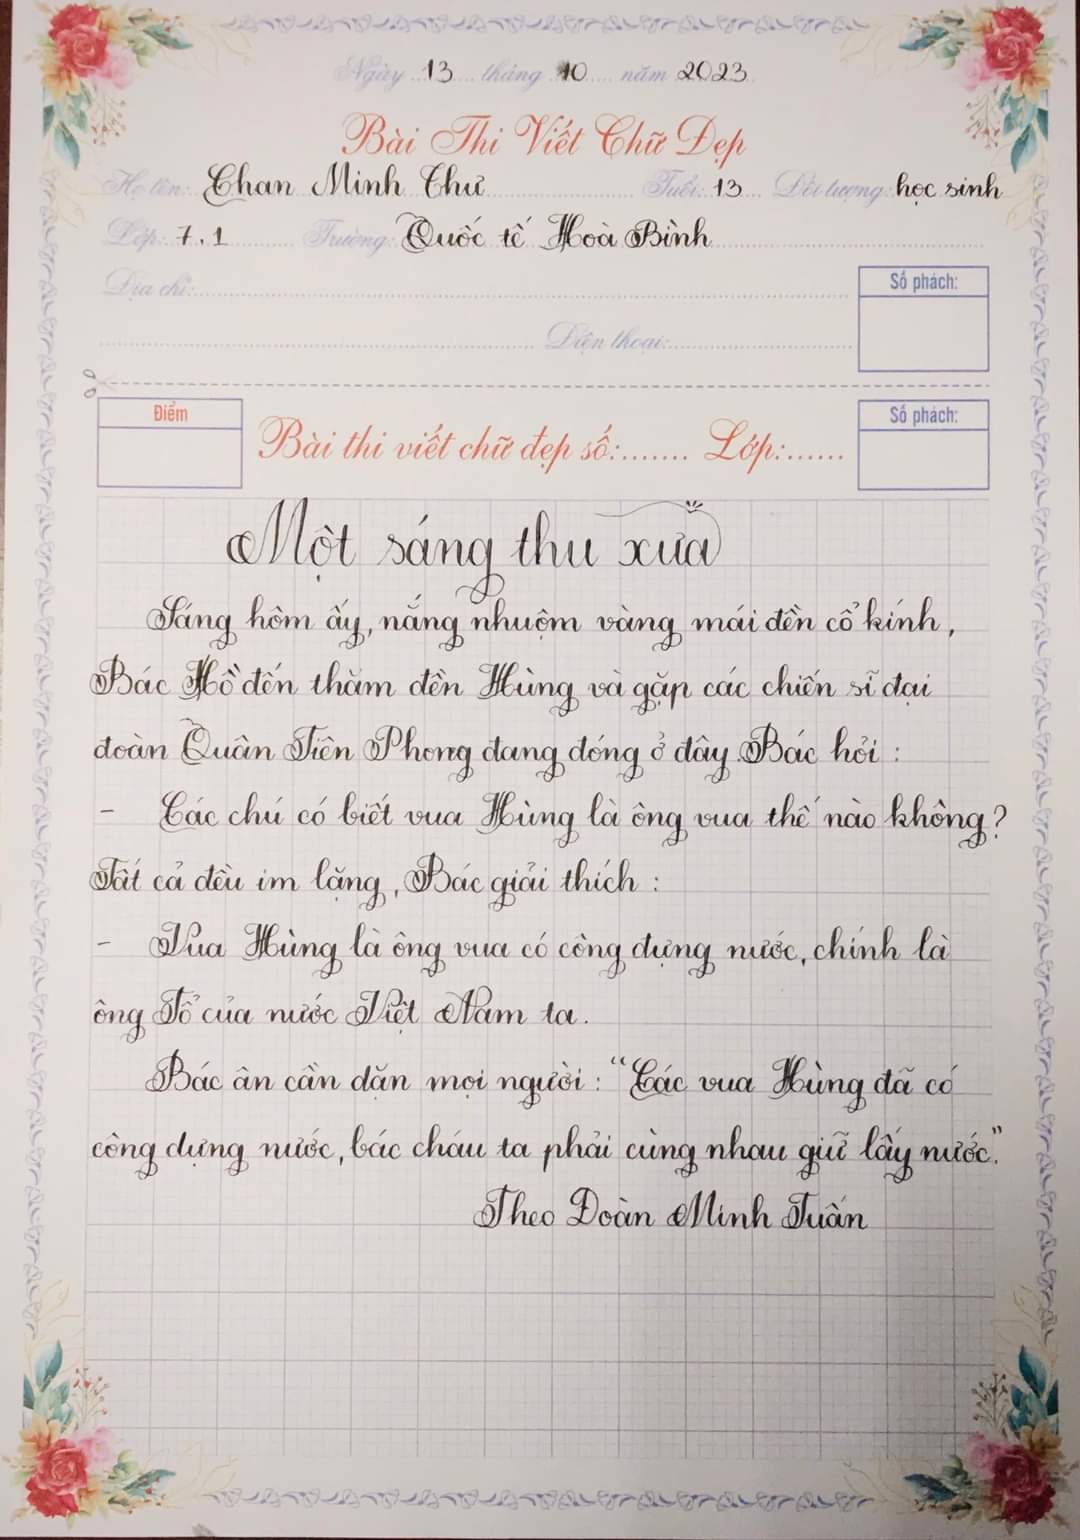 Ngày 13 tháng 10 năm 2023
Bài Thi Viết Chữ Đẹp
Họ tên: Chan Minh Thư Tuổi: 13 Đối tượng: học sinh
Lớp: 7.1 Trường: Quốc tế Hoà Bình
Địa chỉ:
Số phách:
Điện thoại:
Điểm
Bài thi viết chữ đẹp số:....... Lớp:......
Số phách:
Một sáng thu xưa
Sáng hôm ấy, nắng nhuộm vàng mái đền cổ kính,
Bác Hồ đến thăm đền Hùng và gặp các chiến sĩ đại
đoàn Quân Tiên Phong đang đóng ở đây. Bác hỏi :
- Các chú có biết vua Hùng là ông vua thế nào không?
Tất cả đều im lặng, Bác giải thích :
- Vua Hùng là ông vua có công dựng nước, chính là
ông Tổ của nước Việt Nam ta.
Bác ân cần dặn mọi người : "Các vua Hùng đã có
công dựng nước, bác cháu ta phải cùng nhau giữ lấy nước".
Theo Đoàn Minh Tuấn